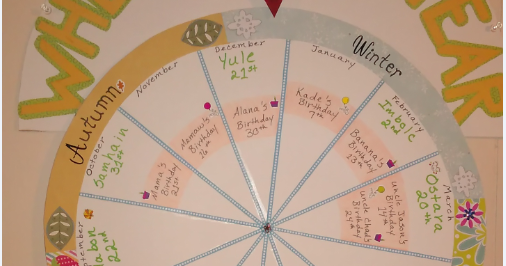 WH
EAR
Autumn
Winter
September
Mabon
22nd
October
Samhain
31st
Mama's
Birthday
November
Mamaw's
Birthday
December
Yule
21st
Alana's
Birthday
30th
January
Kade's
Birthday
7th
February
Imbolc
2nd
Banana's
Birthday
13th
March
Ostara
20th
Uncle Jason's
Birthday
14th
Uncle Chad's
Birthday
24th